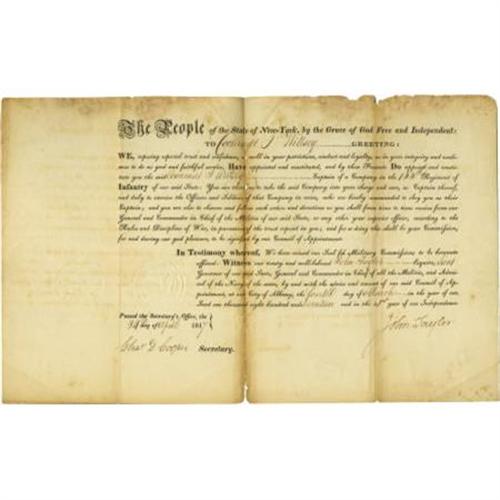 The People of the State of New-York, by the Grace of God Free and Independent:
TO Coonradt J Wilsey GREETING:
WE, reposing especial trust and confidence, as well in your patriotism, conduct and loyalty, as in your integrity and readiness
to do us good and faithful service, HAVE appointed and constituted, and by these Presents DO appoint and constitute
you the said Coonradt J Wilsey Captain of a Company in the Regiment of
Infantry of our said State: You are therefore to take the said Company into your charge and care, as Captain thereof,
and duly to exercise the Officers and Soldiers of that Company in arms, who are hereby commanded to obey you as their
Captain; and you are also to observe and follow such orders and directions as you shall from time to time receive from our
General and Commander in Chief of the Militia of our said State, or any other your superior officer, according to the
Rules and Discipline of War, in pursuance of the trust reposed in you; and for so doing this shall be your Commission,
for and during our good pleasure, to be signified by our Council of Appointment.
In Testimony whereof, We have caused our Seal for Military Commissions to be hereunto
affixed: WITNESS our trusty and well-beloved John Tayler Esquire, Lieut
Governor of our said State, General and Commander in Chief of all the Militia, and Admiral
of the Navy of the same, by and with the advice and consent of our said Council of
Appointment, at our City of Albany, the fourth day of March in the year of
our Lord one thousand eight hundred and seventeen and in the 41st year of our Independence.
Passed the Secretary's Office, the
day of April 1817
John Tayler
Chas D Cooper Secretary.